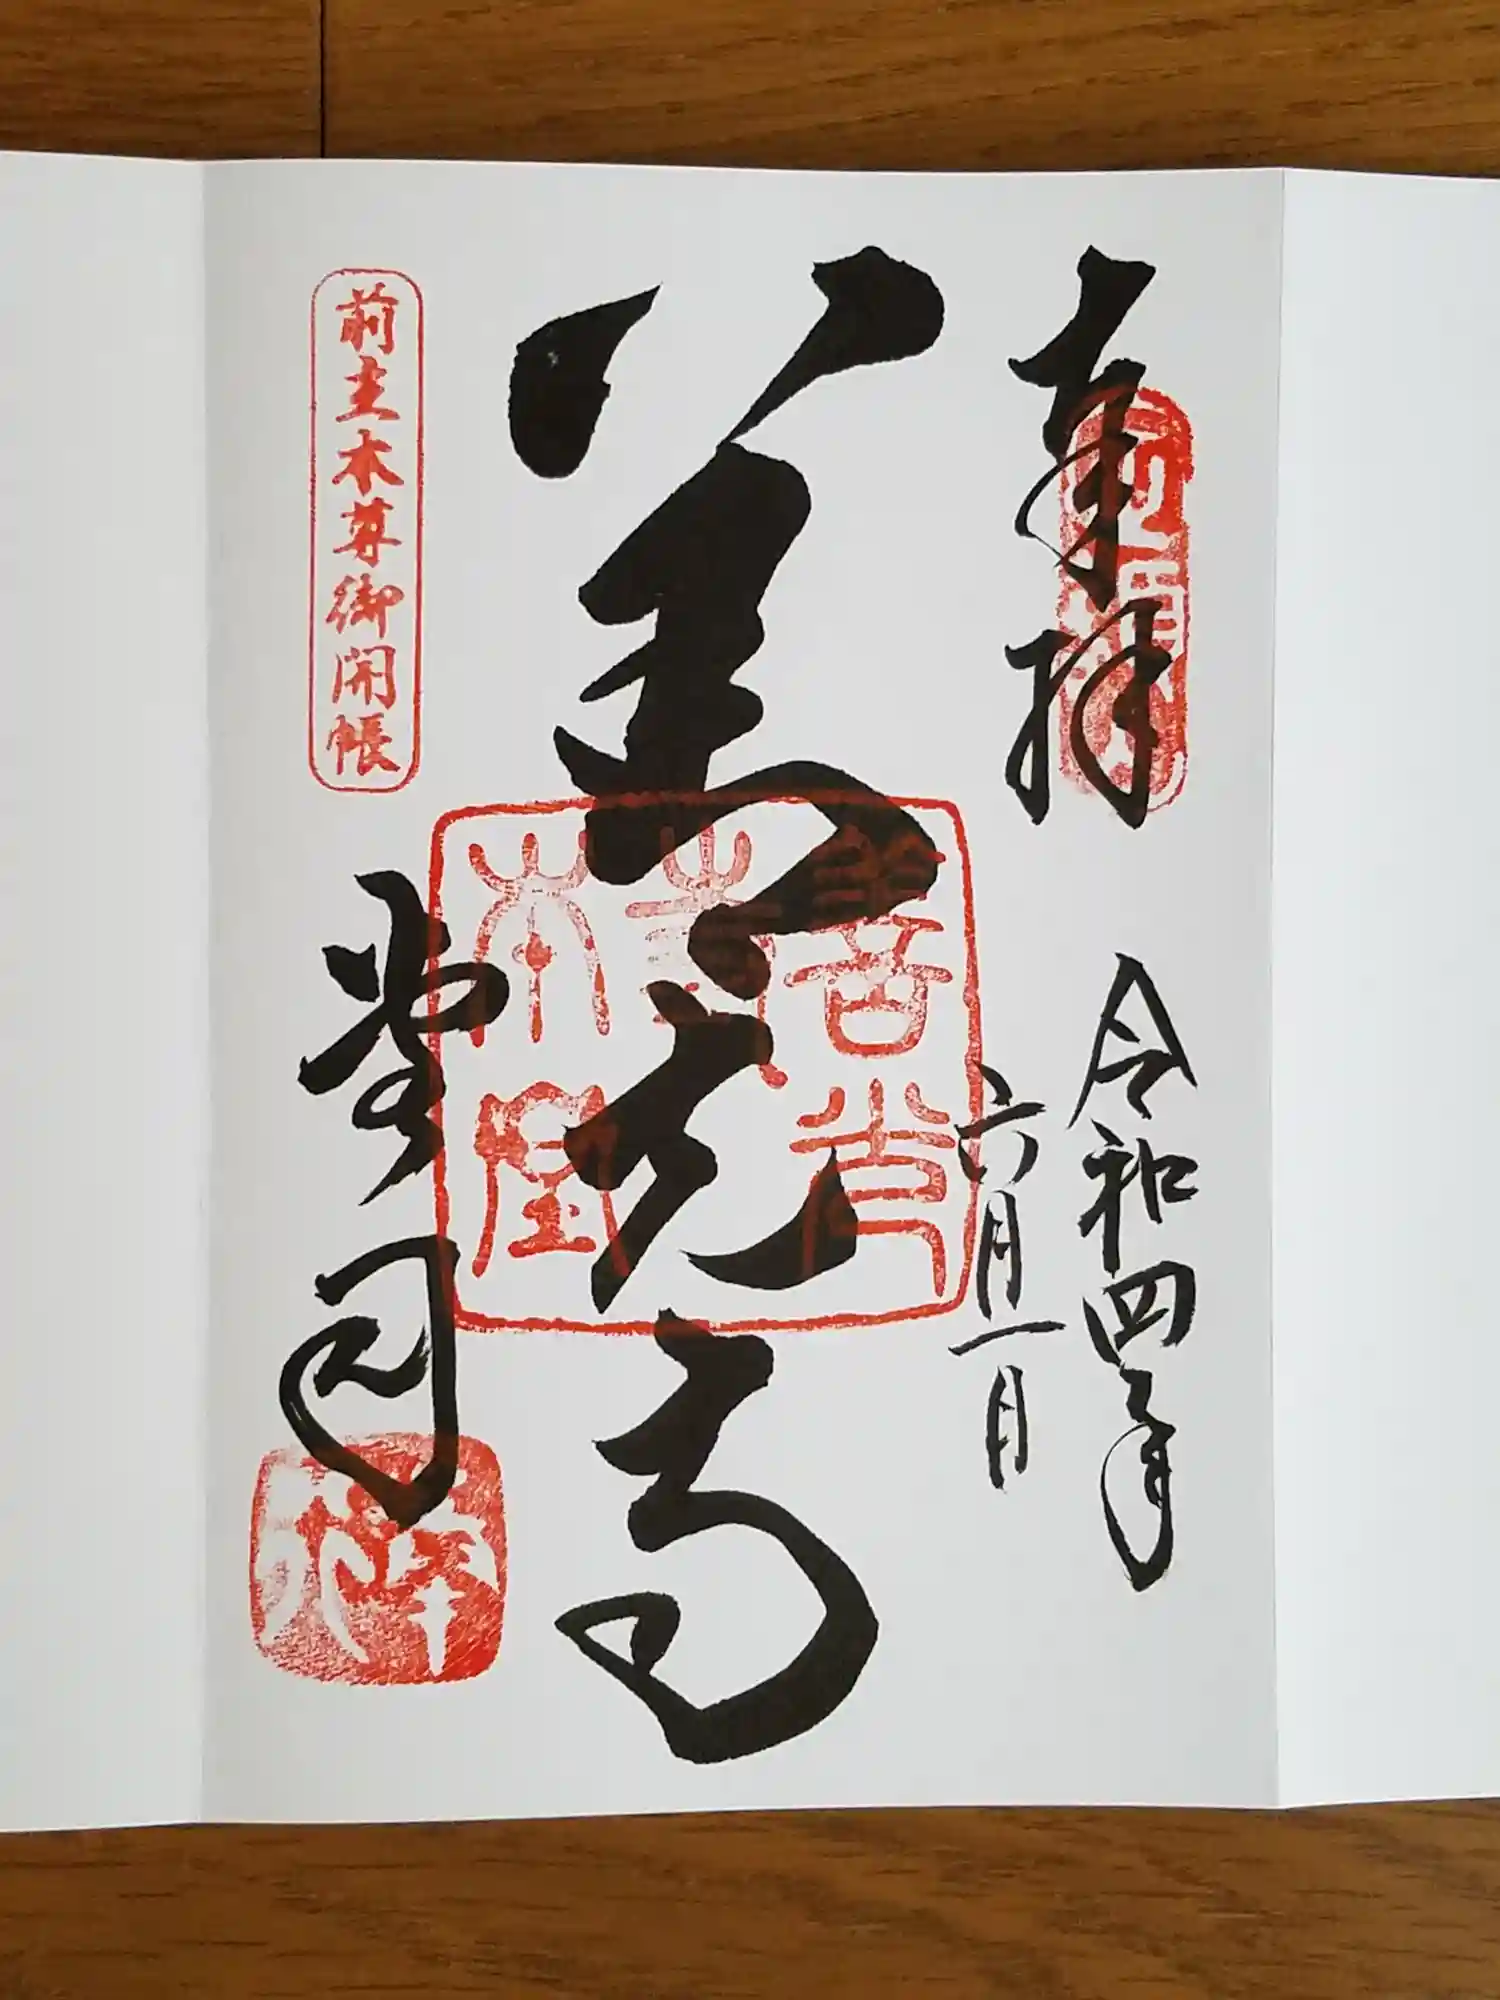 奉拝
令和四年
六月一日
善光寺
前立本尊御開帳
堂司